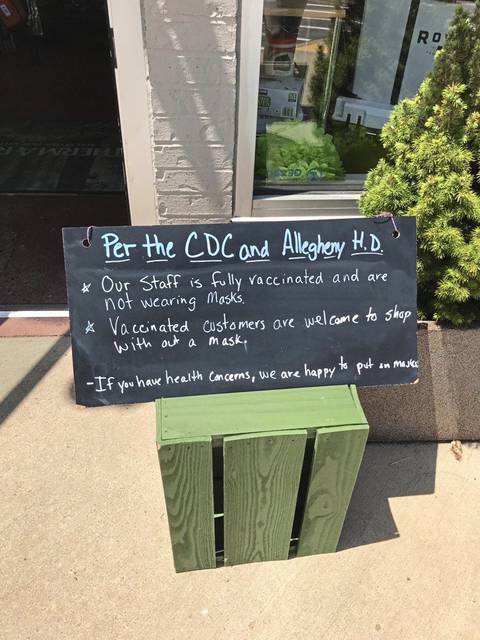 Per the CDC and Allegheny H.D.
* Our Staff is fully vaccinated and are
not wearing Masks.
* Vaccinated customers are welcome to shop
with out a mask.
- If you have health concerns, we are happy to put on masks